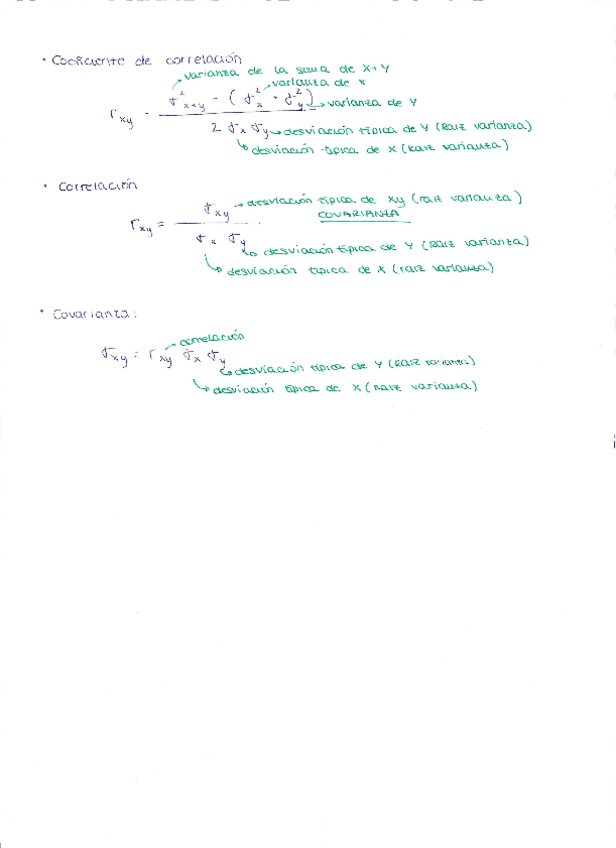 • Coeficiente de correlación
varianza de la suma de X+Y
varianza de x
r xy = σ² x+y - ( σ² x + σ² y ) → varianza de Y
2 σx σy → desviación típica de Y (RAIZ varianza)
desviación típica de X (RAIZ varianza)
• Correlación
σxy → desviación típica de xy (raiz varianza)
COVARIANZA
rxy =
σx σy
desviación típica de Y (RAIZ varianza)
desviación típica de X (raiz varianza)
• Covarianza:
correlación
σxy = rxy σx σy
desviación típica de Y (RAIZ varianza)
desviación típica de X (RAIZ varianza)